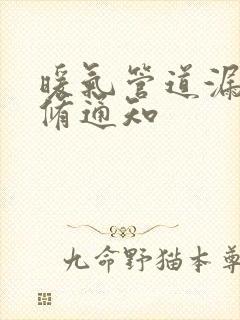 暖氣管道漏
脩通知
九命野猫本尊